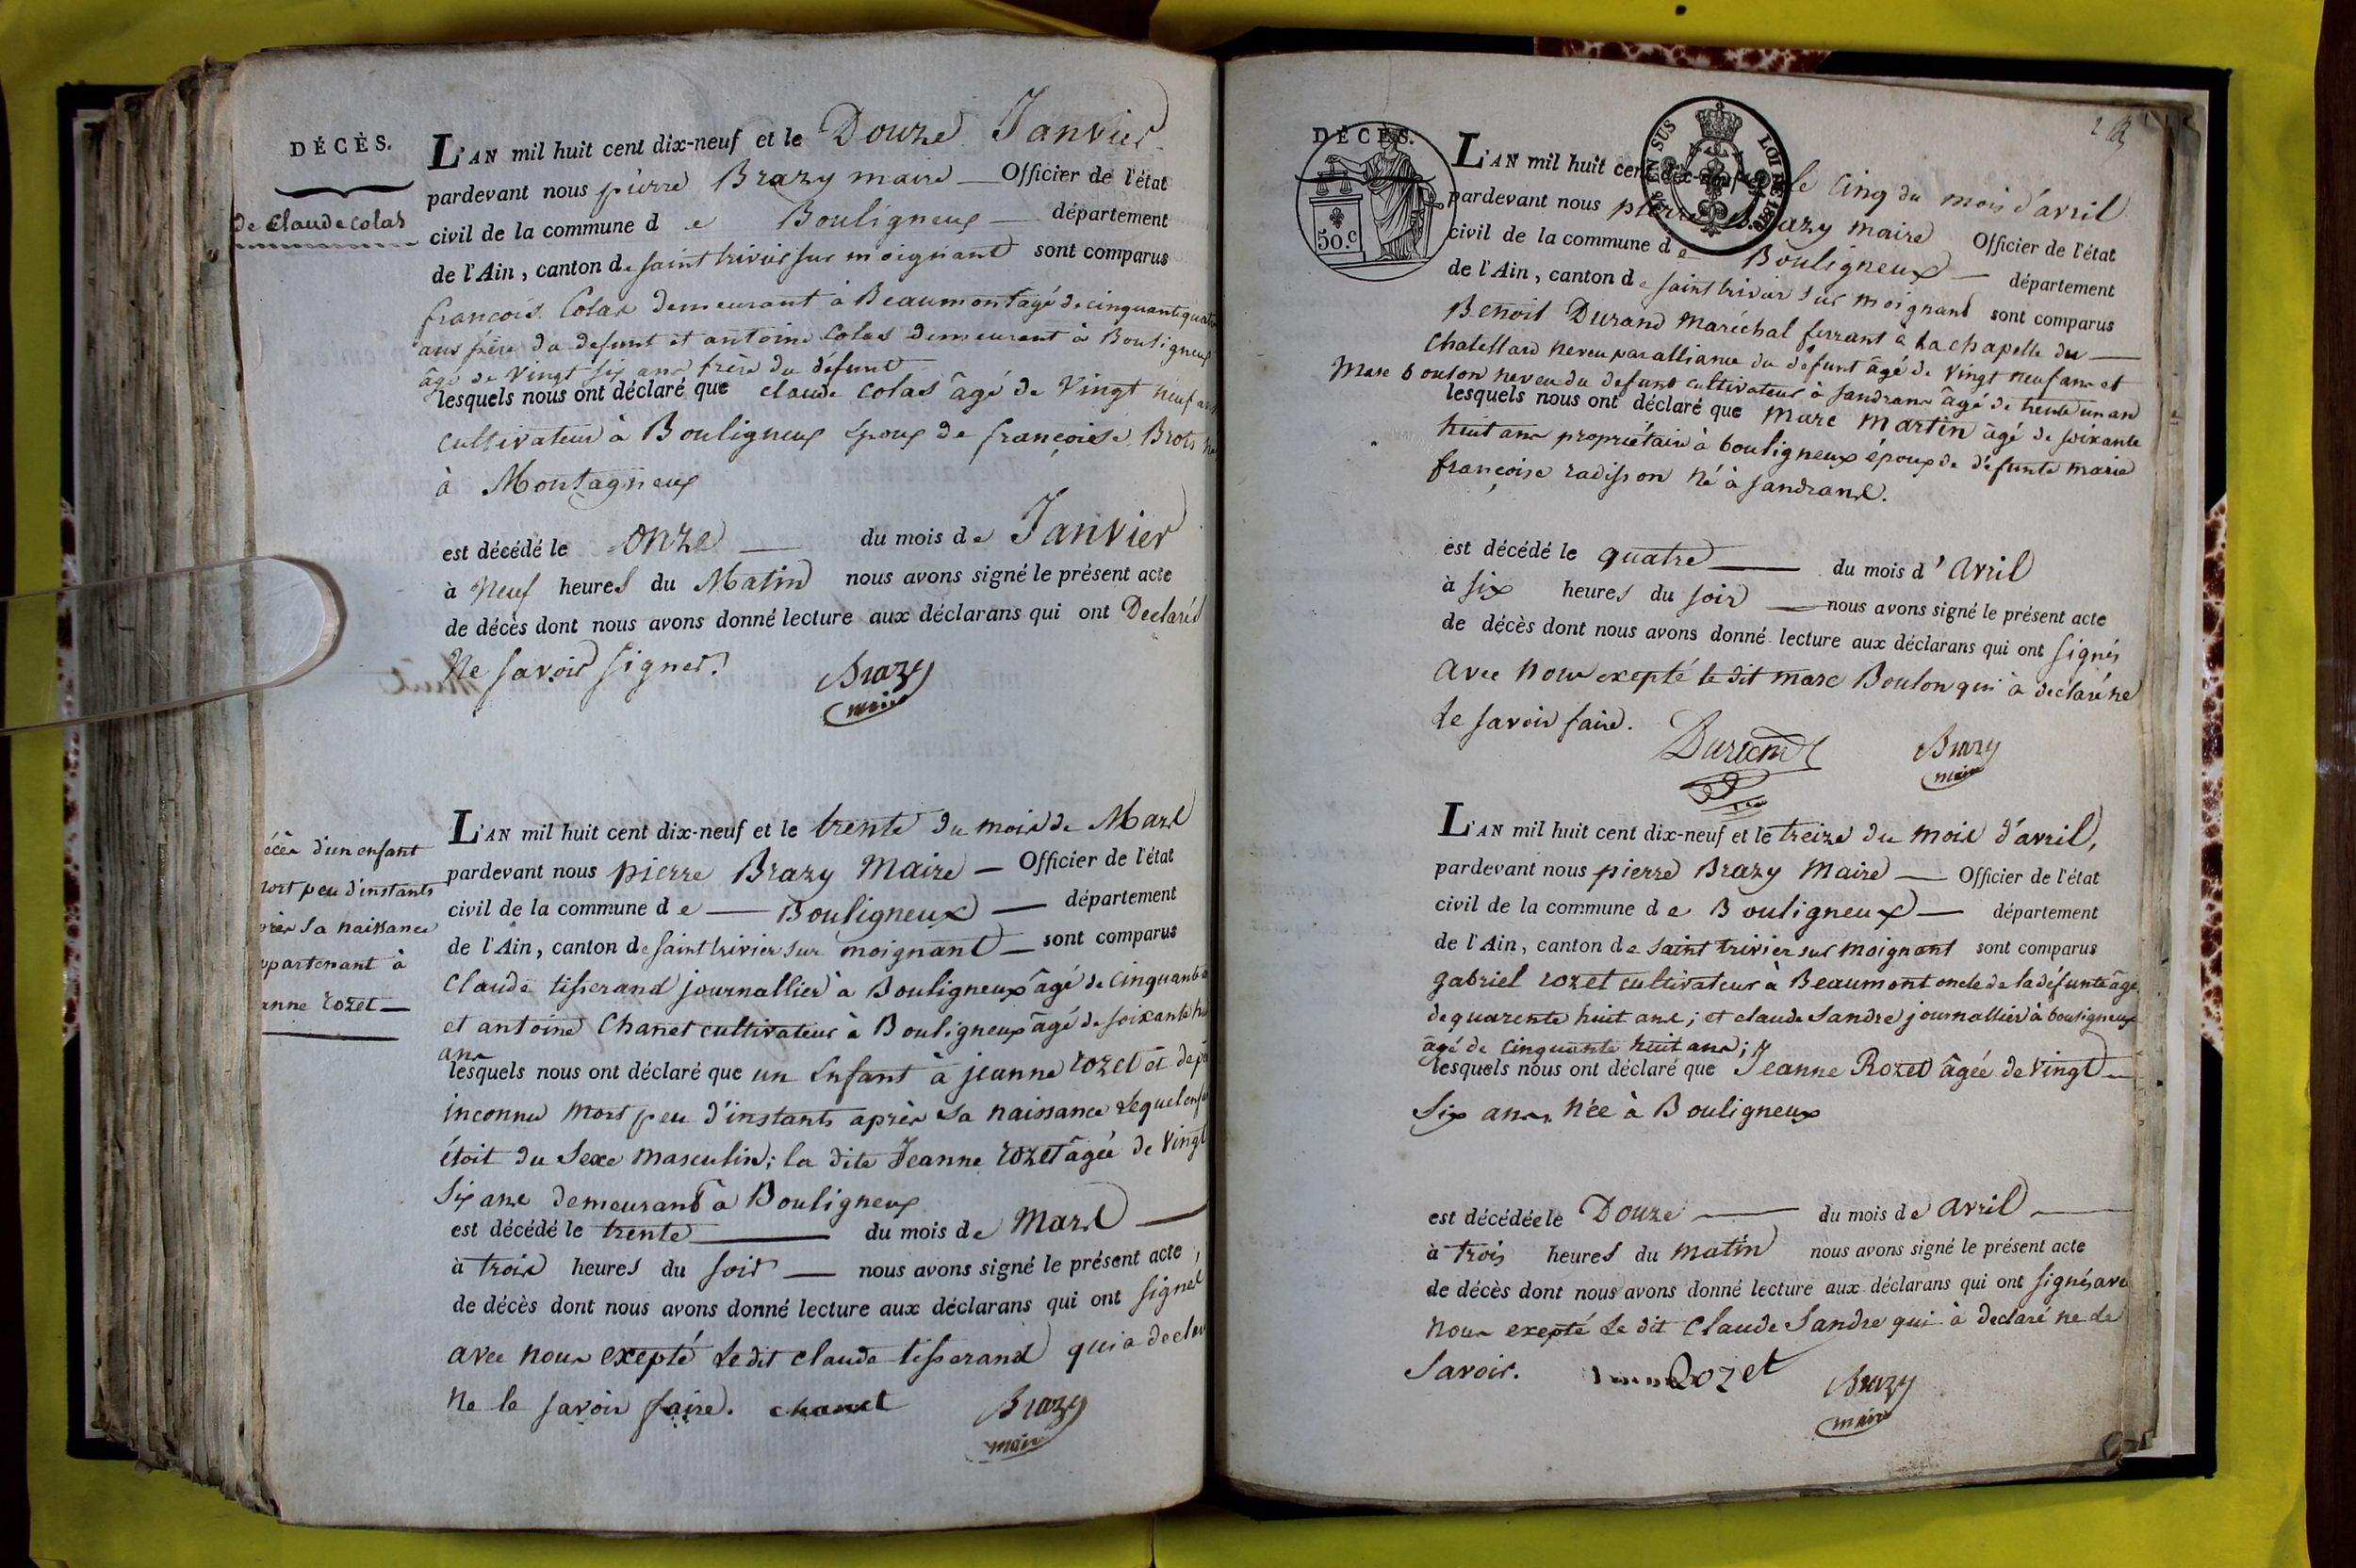 DÉCÈS.
de Claude Colas
L'AN mil huit cent dix-neuf et le Douze Janvier
pardevant nous pierre Brazy maire — Officier de l'état
civil de la commune de Bouligneux — département
de l'Ain, canton de saint trivier sur moignant sont comparus
françois Colas demeurant à Beaumont agé de cinquante quatre
ans père du defunt et antoine Colas demeurant à Bouligneux
âgé de vingt six ans frère du défunt
lesquels nous ont déclaré que claude colas âgé de vingt neuf ans
cultivateur à Bouligneux Epoux de françoise Brots
à Montagneux
est décédé le onze — du mois de Janvier
à Neuf heures du Matin nous avons signé le présent acte
de décès dont nous avons donné lecture aux déclarans qui ont Declarés
Ne savoir signer.
Brazy
maire
écès d'un enfant
mort peu d'instants
après sa naissance
appartenant à
anne rozet —
L'AN mil huit cent dix-neuf et le trente du mois de Mars
pardevant nous pierre Brazy Maire — Officier de l'état
civil de la commune de — Bouligneux — département
de l'Ain, canton de saint trivier sur moignant — sont comparus
Claude tisserand journallier à Bouligneux âgé de cinquante
et antoine Chanet cultivateur à Bouligneux âgé de soixante
ans
lesquels nous ont déclaré que un Enfant à jeanne rozet et de
inconnu mort peu d'instants après sa naissance Lequel
étoit du Sexe masculin; la dite Jeanne rozet âgée de vingt
Six ans demeurant à Bouligneux
est décédé le trente — du mois de Mars —
à trois heures du soir — nous avons signé le présent acte
de décès dont nous avons donné lecture aux déclarans qui ont signés
avec nous exepté Ledit claude tisserand qui a
Ne le savoir faire. chanet
Brazy
maire
DÉCÈS.
50.C
EN SUS
LOI DE 1816
L'AN mil huit cent dix-neuf et le cinq du mois d'avril
pardevant nous pierre Brazy maire Officier de l'état
civil de la commune de Bouligneux — département
de l'Ain, canton de saint trivier sur moignant sont comparus
Benoit Durand maréchal ferrant à la chapelle du —
Chatellard neveu par alliance du défunt âgé de vingt neuf ans et
Marc Boulon neveu du defunt cultivateur à sandrans âgé de trente un ans
lesquels nous ont déclaré que Marc Martin âgé de soixante
huit ans propriétaire à bouligneux époux de défunte marie
françoise radisson né à sandrans.
est décédé le quatre — du mois d'avril
à six heures du soir — nous avons signé le présent acte
de décès dont nous avons donné lecture aux déclarans qui ont signés
avec nous exepté le dit marc Boulon qui à declaré ne
le savoir faire.
Durand
Brazy
maire
L'AN mil huit cent dix-neuf et le treize du mois d'avril,
pardevant nous pierre Brazy Maire — Officier de l'état
civil de la commune de Bouligneux — département
de l'Ain, canton de saint trivier sur moignant sont comparus
gabriel rozet cultivateur à Beaumont oncle de la défunte âgé
de quarente huit ans; et claude Sandre journallier à bouligneux
âgé de cinquante huit ans;
lesquels nous ont déclaré que Jeanne Rozet âgée de vingt —
Six ans, née à Bouligneux
est décédée le Douze — du mois de avril —
à trois heures du matin nous avons signé le présent acte
de décès dont nous avons donné lecture aux déclarans qui ont signés avec
Nous exepté Le dit Claude Sandre qui à declaré ne le
Savoir.
Rozet
Brazy
maire